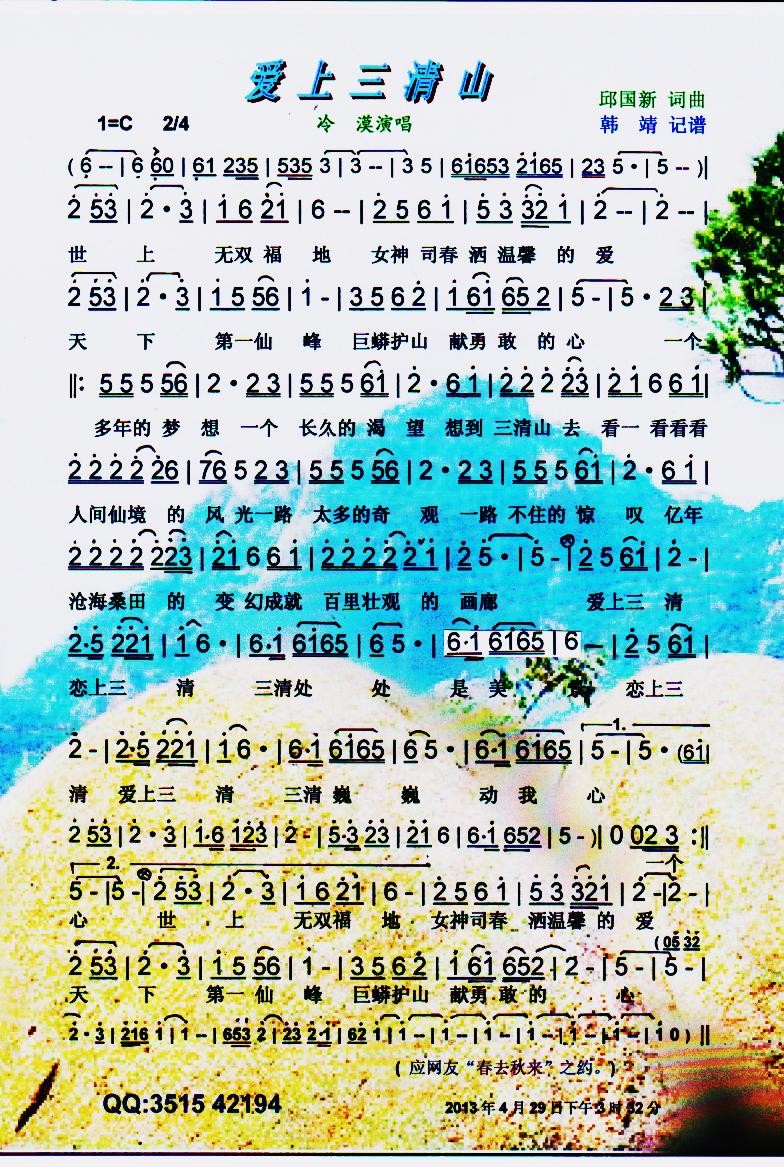 爱上三清山
邱国新 词曲
1=C 2/4 冷 漠演唱 韩 靖 记谱
( 6 -- | 6 60 | 61 235 | 535 3 | 3 -- | 3 5 | 61653 2165 | 23 5 · | 5 -- )|
2 53 | 2 · 3 | 1 6 21 | 6 -- | 2 5 6 1 | 5 3 32 1 | 2 -- | 2 -- |
世 上 无双 福 地 女神 司春 洒 温馨 的 爱
2 53 | 2 · 3 | 1 5 56 | 1 - | 3 5 6 2 | 1 61 65 2 | 5 - | 5 · 2 3 |
天 下 第一仙 峰 巨蟒护山 献勇 敢 的 心 一个
‖: 5 5 5 56 | 2 · 2 3 | 5 5 5 61 | 2 · 6 1 | 2 2 2 23 | 2 1 6 6 1 |
多年的 梦 想 一个 长久的 渴 望 想到 三清山 去 看一 看看看
2 2 2 2 26 | 76 5 2 3 | 5 5 5 56 | 2 · 2 3 | 5 5 5 61 | 2 · 6 1 |
人间仙境 的 风 光一路 太多的奇 观 一路 不住的 惊 叹 亿年
2 2 2 2 223 | 21 6 6 1 | 2 2 2 2 2 1 | 2 5 · | 5 - 2 5 61 | 2 - |
沧海桑田 的 变 幻成就 百里壮观 的 画廊 爱上三 清
2·5 221 | 1 6 · | 6·1 6165 | 6 5 · | 6·1 6165 | 6 — | 2 5 61 |
恋上三 清 三清处 处 是 美 恋上三
1.
2 - | 2·5 221 | 1 6 · | 6·1 6165 | 6 5 · | 6·1 6165 | 5 - | 5 · (61 |
清 爱上三 清 三清 巍 巍 动 我 心
2 53 | 2 · 3 | 1·6 123 | 2 - | 5·3 23 | 21 6 | 6·1 652 | 5 - )| 0 02 3 :‖
2. 一个
5 - | 5 - 2 53 | 2 · 3 | 1 6 21 | 6 - | 2 5 6 1 | 5 3 321 | 2 - | 2 - |
心 世 上 无双福 地 女神司春 洒温馨 的 爱
( 05 32
2 53 | 2 · 3 | 1 5 56 | 1 - | 3 5 6 2 | 1 61 652 | 2 - | 5 - | 5 - |
天 下 第一 仙 峰 巨蟒护山 献勇 敢 的 心
2 · 3 | 216 1 | 1 -- | 653 2 | 23 2·1 | 62 1 | 1 -- | 1 -- | 1 -- | 1 -- | 1 -- | 1 0 ) ‖
( 应网友“春去秋来”之约。)
QQ:3515 42194 2013年4月29日下午3时32分